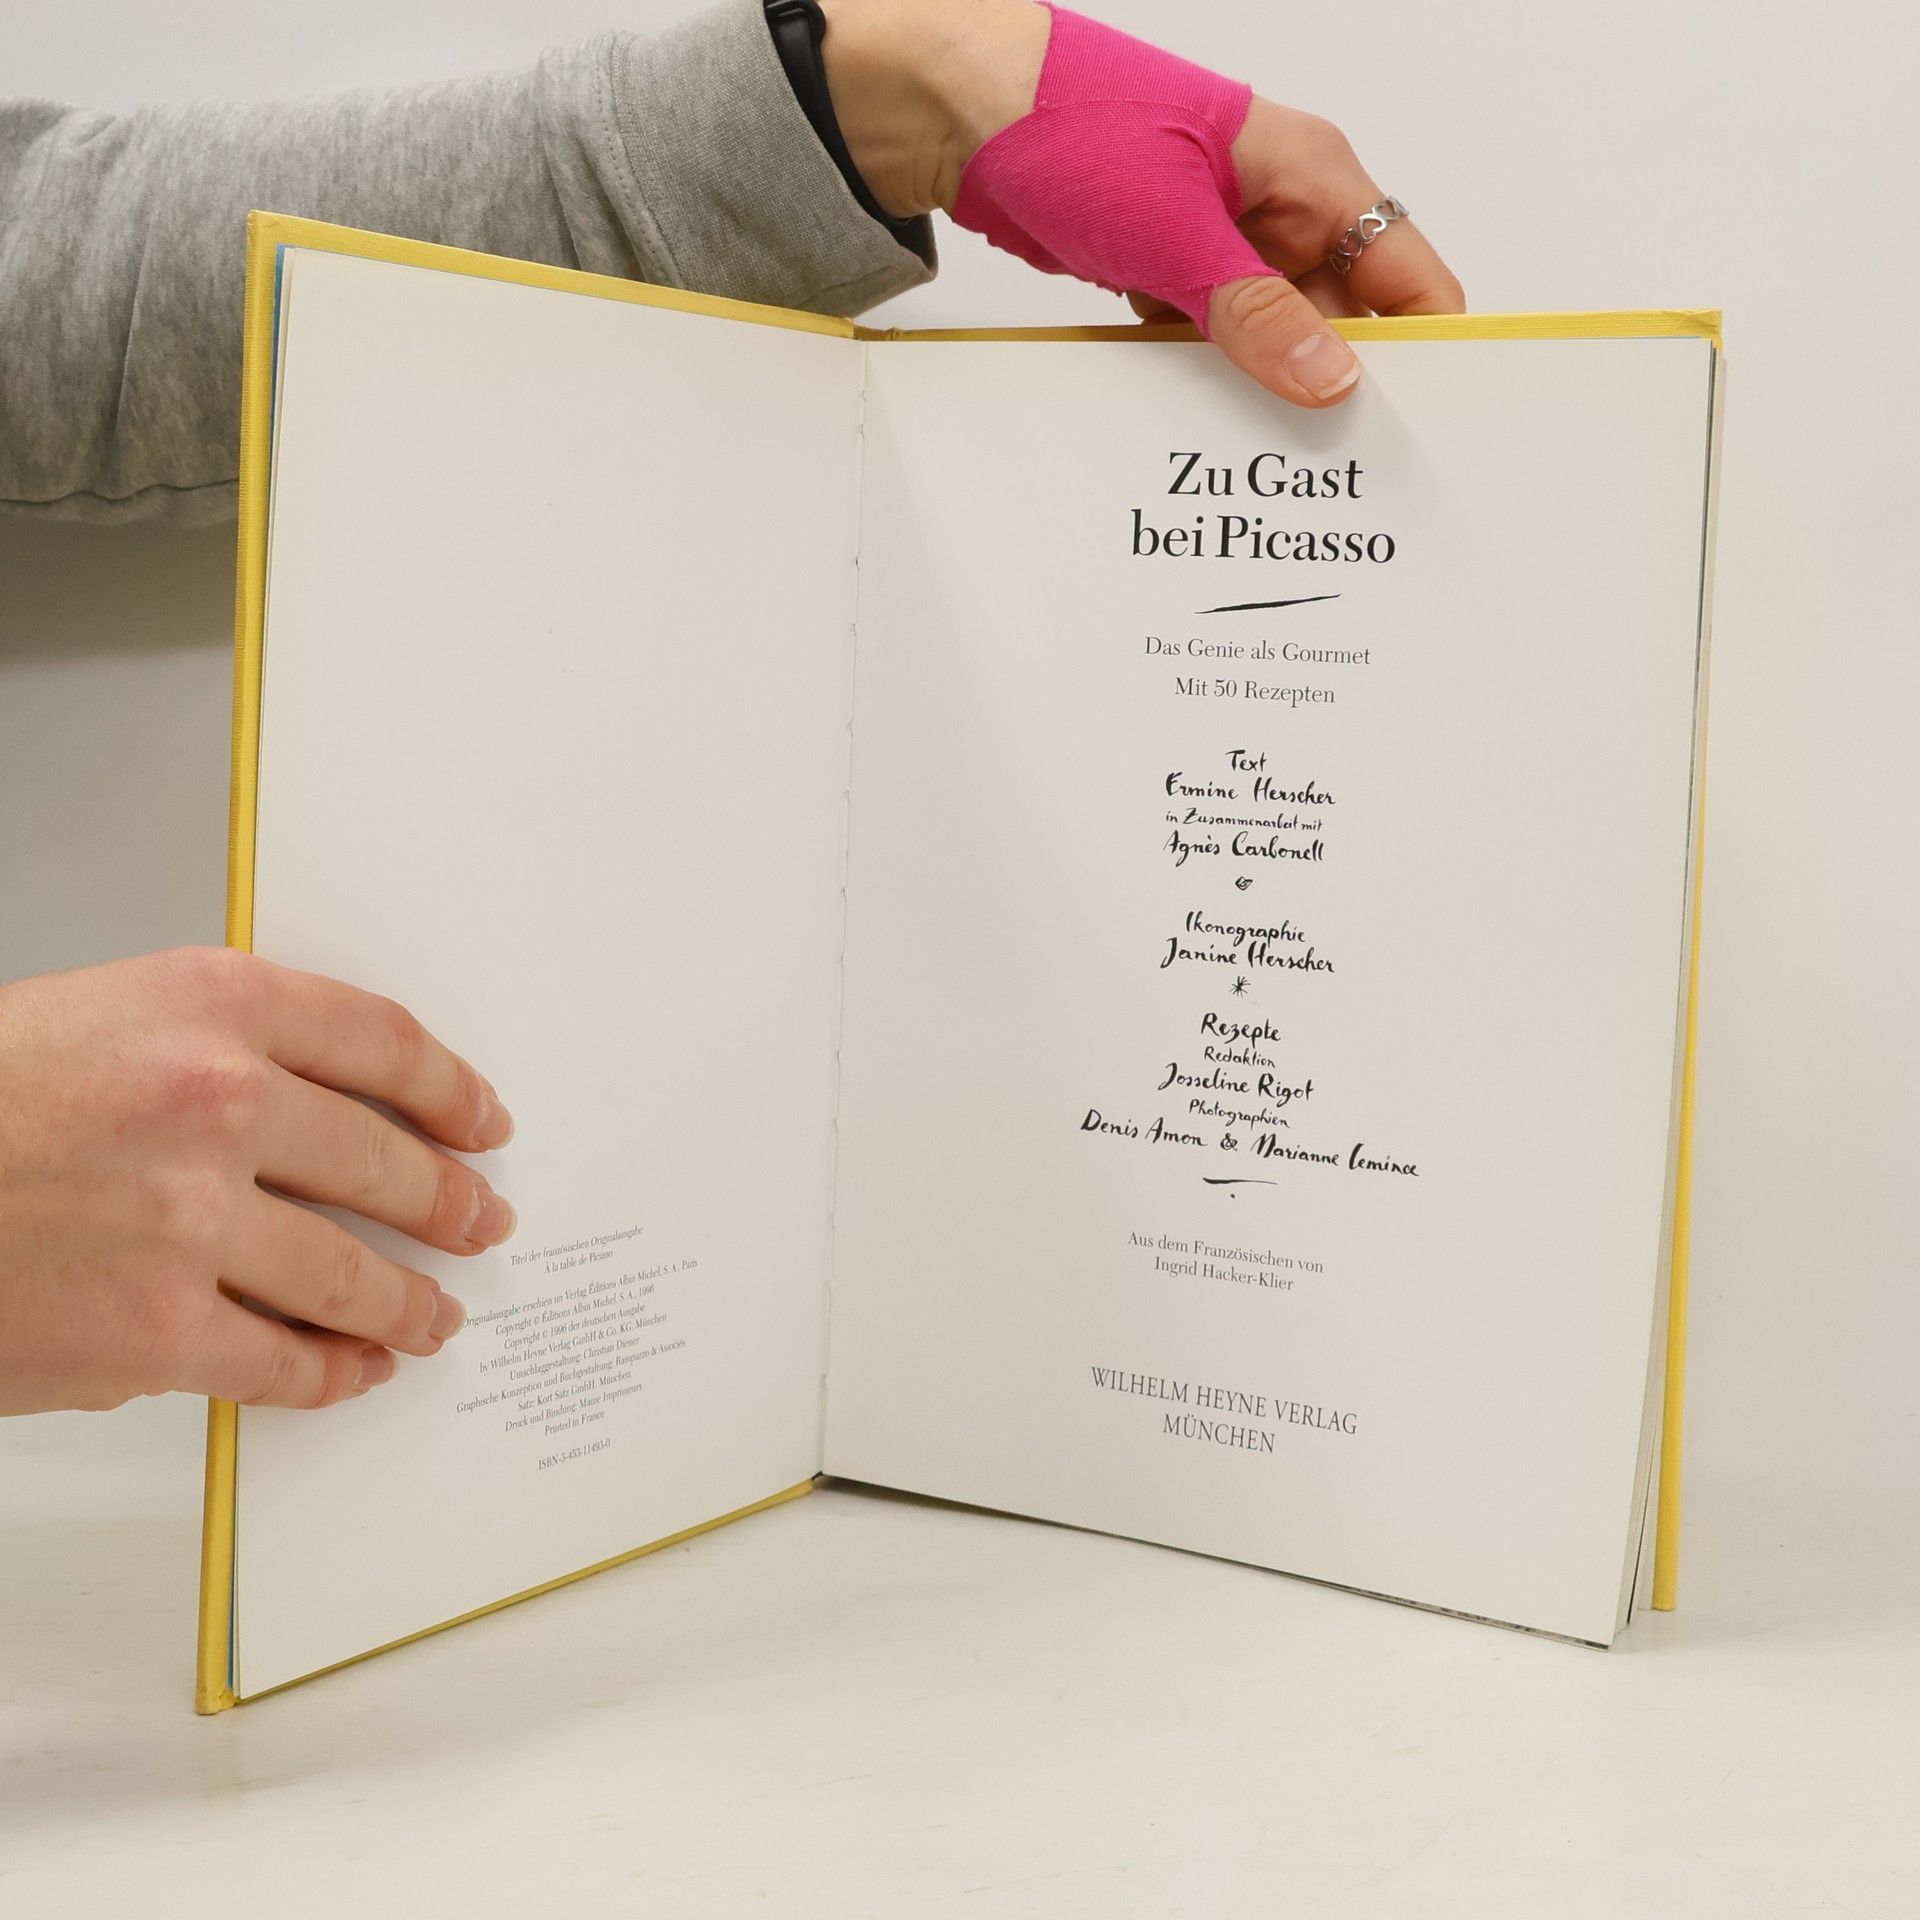 Titel der französischen Originalausgabe:
À la table de Picasso
Originalausgabe erschien im Verlag Éditions Albin Michel, S. A., Paris
Copyright © Éditions Albin Michel, S. A., 1996
Copyright © 1996 der deutschen Ausgabe
by Wilhelm Heyne Verlag GmbH & Co. KG, München
Umschlaggestaltung: Christian Diener
Graphische Konzeption und Buchgestaltung: Rampazzo & Associés
Satz: Kort Satz GmbH, München
Druck und Bindung: Mame Imprimeurs
Printed in France
ISBN-3-453-11493-0
Zu Gast
bei Picasso
Das Genie als Gourmet
Mit 50 Rezepten
Text
Ermine Herscher
in Zusammenarbeit mit
Agnès Carbonell
&
Ikonographie
Janine Herscher
*
Rezepte
Redaktion
Josseline Rigot
Photographien
Denis Amon & Marianne Lemince
Aus dem Französischen von
Ingrid Hacker-Klier
WILHELM HEYNE VERLAG
MÜNCHEN